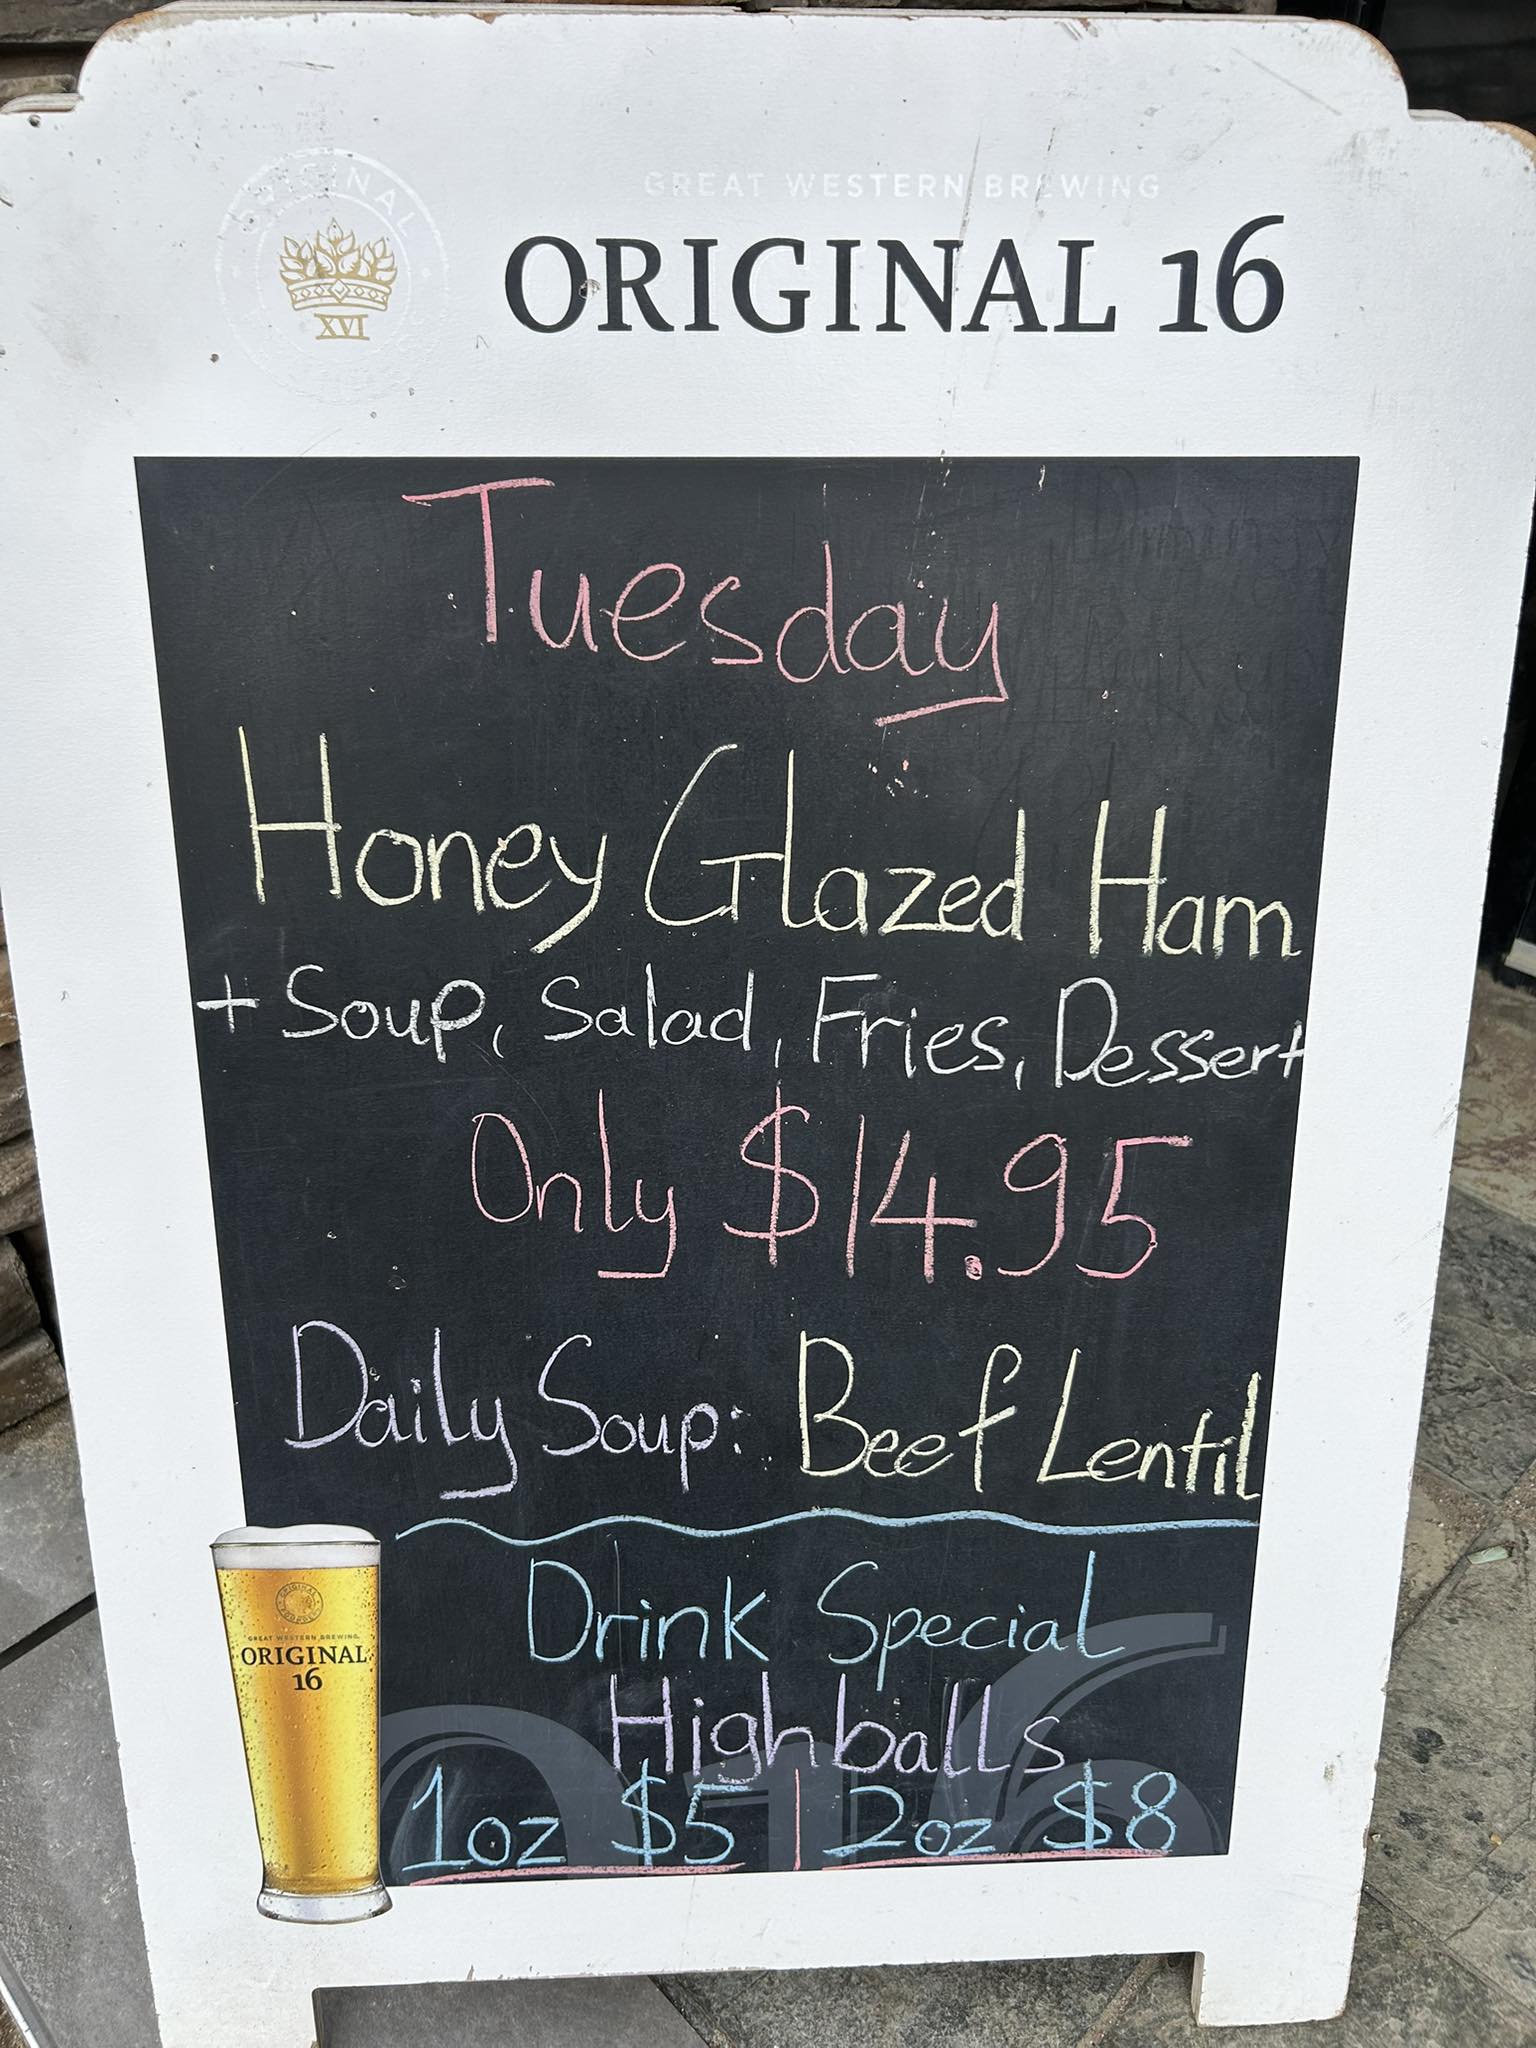 ORIGINAL
XVI
GREAT WESTERN BREWING
ORIGINAL 16
Tuesday
Honey Glazed Ham
+ Soup, Salad, Fries, Dessert
Only $14.95
Daily Soup: Beef Lentil
Drink Special
Highballs
1oz $5 | 2oz $8
ORIGINAL
GREAT WESTERN BREWING
ORIGINAL
16
016